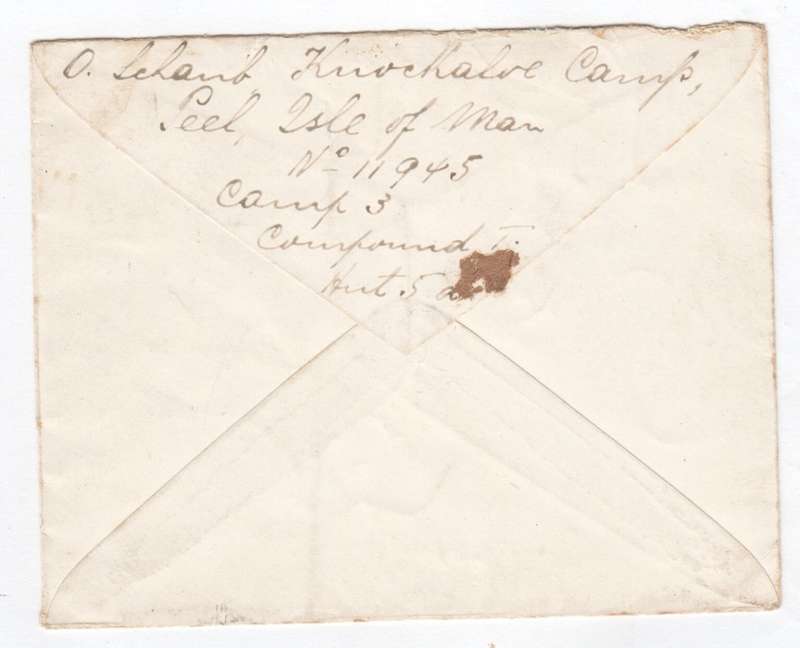 O. Schaub, Knockaloe Camp,
Peel, Isle of Man
No 11945
Camp 3
Compound T.
Hut 5a